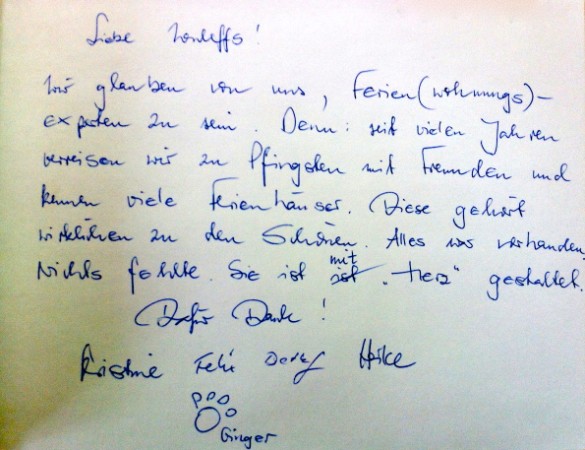 Liebe
wir glauben von uns, Ferien(wohnungs)-
experten zu sein. Denn: seit vielen Jahren
verreisen wir zu Pfingsten mit Freunden und
kennen viele Ferienhäuser. Diese gehört
wirklichen zu den Schönen. Alles was vorhanden,
Nichts fehlte. Sie ist mit "Herz" gestaltet.
Dafür Dank!
Kristine Felix Detlef Heike
Ginger